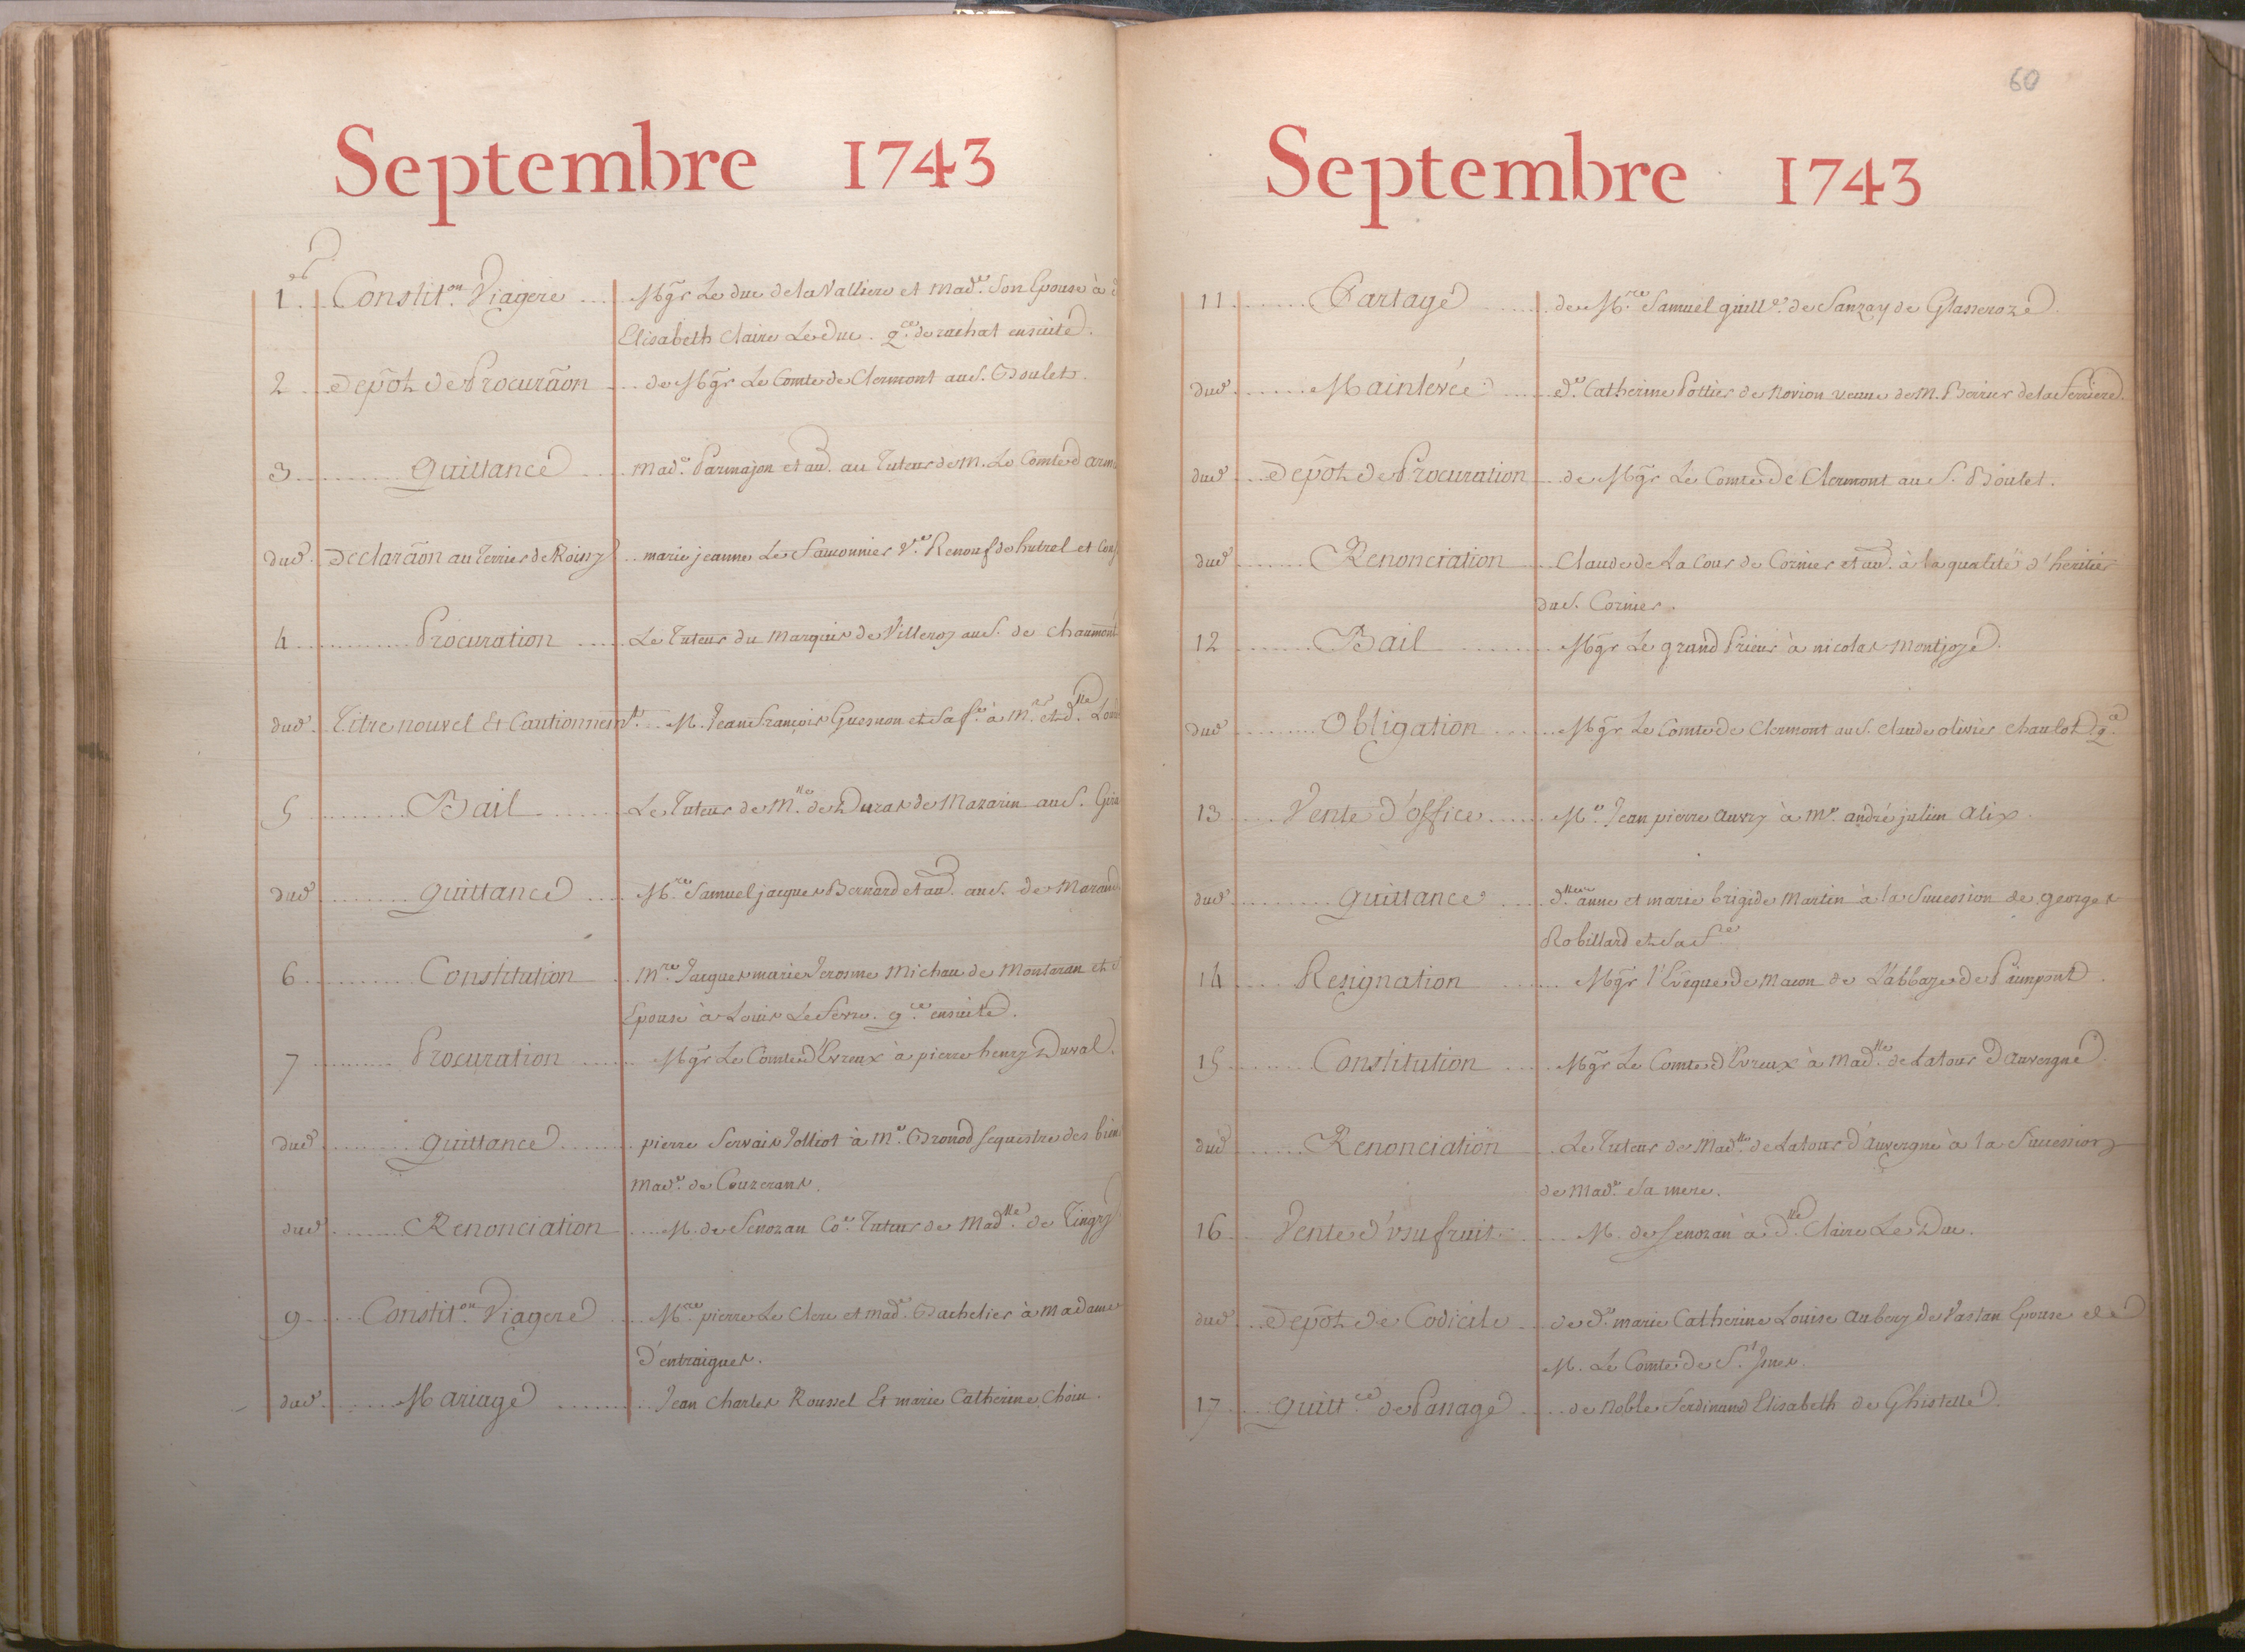 Septembre 1743
1.er Constit.on Viagere Mgr Le duc de la Valliere et Mad.e Son Epouse à
Elisabeth Claire Le duc. q.ce de rachat ensuite.
2 Depôt de Procurãon de Mgr Le Comte de Clermont au S. Boulet.
3 Quittance Mad.e Parmajon et au. au Tuteur de M. Le Comte d'arm
dud. Declarãon au Terrier de Roissy marie jeanne Le Sausonnier V.e Renouf de hutrel et Cons
4 Procuration Le Tuteur du Marquis de Villeroy au S. de Chaumont
dud. Titre nouvel Et Cautionnem.t M. Jean François Guesnon et Sa f.e à M.r et d.lle Lou
5 Bail Le Tuteur de M.lle de Duras de Mazarin au S. Gira
dud. quittance M.re Samuel jacques Bernard et au. au S. de Marand
6 Constitution M.re Jacques marie Jerosme Michau de Montaran et S
Epouse à Louis Le Sevre. q.ce ensuite.
7 Procuration Mgr Le Comte d'Evreux à pierre henry Duval.
dud. quittance pierre Servais Jolliot à M.e Bronod sequestre des bien
Mad.e de Couzerans.
dud. Renonciation M. de Senozan Co.e Tuteur de Mad.lle de Tingry
9 Constit.on Viagere M.re pierre Le Clerc et Mad.e Bachelier à Madame
d'entraigues.
dud. Mariage Jean Charles Roussel Et marie Catherine Choin.
60
Septembre 1743
11 Partage de M.re Samuel guill.e de Sanzay de Glasseroze.
dud. Mainlevée d.e Catherine Pottier de Novion veuve de M. Berrier de la Ferriere.
dud. Depôt de Procuration de Mgr Le Comte de Clermont au S. Boulet.
dud. Renonciation Claude de La Cour de Cornier et au. à la qualité d'héritier
du S. Cornier.
12 Bail Mgr Le grand Prieur à nicolas Montjoye.
dud. Obligation Mgr Le Comte de Clermont au S. Claude olivier Chaulot q.ce
13 Vente d'office M.e Jean pierre Auvry à M.e andré julien Alix.
dud. quittance d.lles anne et marie brigide Martin à la Succession de georges
Robillard et Sa f.e
14 Resignation Mgr l'Evêque de Macon de L'abbaye de Paimpont.
15 Constitution Mgr Le Comte d'Evreux à Mad.lle de Latour d'Auvergne.
dud. Renonciation Le Tuteur de Mad.lle de Latour d'Auvergne à la Succession
de Mad.e Sa mere.
16 Vente d'usufruit. M. de Senozan à d.lle Claire Le Duc.
dud. Depôt de Codicile de d.e marie Catherine Louise Aubery de Vastan Epouse de
M. Le Comte de S.t
17 quitt.ce de Panage de Noble Ferdinand Elisabeth de Ghistelle.